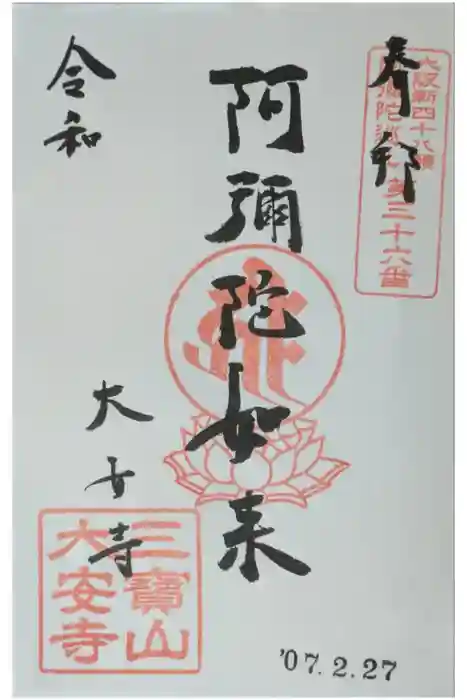 奉拝
大阪新四十八願
阿彌陀巡礼第三十六番
阿彌陀如来
令和
大安寺
三寶山
大安寺
'07.2.27